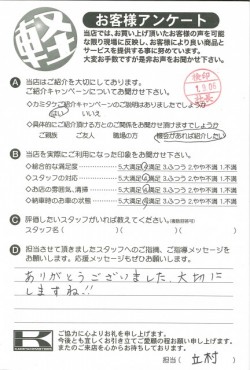 軽
お客様アンケート
当店では、お買い上げ頂いたお客様の声を可能
な限り現場に反映し、お客様により良い商品と
サービスを提供する事に努めています。
大変お手数ですが是非お声をお聞かせ下さい。
検印
1.9.06
A 当店はご紹介を大切にしております。
ご紹介キャンペーンについてお聞かせ下さい。
◇カミタケご紹介キャンペーンのご説明はありましたでしょうか
はい いいえ
◇具体的にご紹介頂ける方とのご関係をお聞かせ頂けますでしょうか
ご親族 ご友人 職場の方 機会があれば紹介したい
B 当店を実際にご利用になった印象をお聞かせ下さい。
◇総合的な満足度 5.大満足 4.満足 3.ふつう 2.やや不満 1.不満
◇スタッフの対応 5.大満足 4.満足 3.ふつう 2.やや不満 1.不満
◇お店の雰囲気、清掃 5.大満足 4.満足 3.ふつう 2.やや不満 1.不満
◇納車時のお車の状態 5.大満足 4.満足 3.ふつう 2.やや不満 1.不満
C 評価したいスタッフがいれば教えてください。
スタッフ名( )( )( )
D 担当させて頂きましたスタッフへのご指摘、ご指導メッセージを
お願いします。応援メッセージもぜひお願いします。
ありがとうございました。大切に
しますね!!
K
ご協力に心よりお礼を申し上げます。
今後とも宜しくお引き立てご愛顧の程お願い申し上げます。
またのご来店を心からお待ちしております。
担当( 立村 )